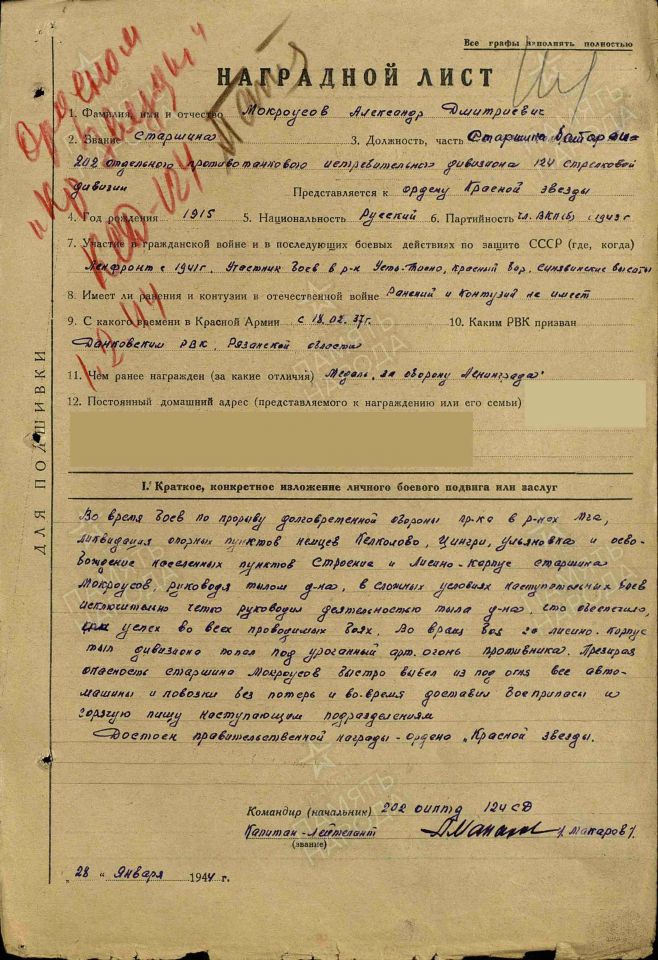 Все графы заполнять полностью
НАГРАДНОЙ ЛИСТ
Орденом
"Кр звезды"
ПСД-124
1.2.44
1. Фамилия, имя и отчество Мокроусов Александр Дмитриевич
2. Звание Старшина 3. Должность, часть Старшина батареи
202 отдельного противотанкового истребительного дивизиона 124 стрелковой
дивизии Представляется к ордену Красной звезды
4. Год рождения 1915 5. Национальность Русский 6. Партийность чл. ВКП(б) с 1943 г
7. Участие в гражданской войне и в последующих боевых действиях по защите СССР (где, когда)
Ленфронт с 1941г. Участник боев в р-н Усть-Тосно, Красный Бор, Синявинские высоты
8. Имеет ли ранения и контузии в отечественной войне Ранений и контузий не имеет
9. С какого времени в Красной Армии с 18.02.37г. 10. Каким РВК призван
Данковским РВК, Рязанской области
11. Чем ранее награжден (за какие отличия) Медаль "за оборону Ленинграда"
12. Постоянный домашний адрес (представляемого к награждению или его семьи)
ДЛЯ ПОДШИВКИ
I. Краткое, конкретное изложение личного боевого подвига или заслуг
Во время боев по прорыву долговременной обороны пр-ка в р-нах Мга,
ликвидация опорных пунктов немцев Келколово, Цингри, Ульяновка и осво-
бождение населенных пунктов Строение и Лисино-Корпус старшина
Мокроусов, руководя тылом д-на, в сложных условиях наступательных боев
исключительно четко руководил деятельностью тыла д-на, сто обеспечило
успех во всех проводимых боях. Во время боя за Лисино-Корпус
тыл дивизиона попал под ураганный арт. огонь противника. Презирая
опасность старшина Мокроусов быстро вывел из под огня все авто-
машины и повозки без потерь и во-время доставил боеприпасы и
горячую пищу наступающим подразделениям
Достоен правительственной награды - ордена "Красной звезды.
Командир (начальник) 202 оиптд 124 сд
Капитан-Лейтенант /Макаров/.
(звание)
"28" Января 1944 г.
ПАМЯТЬ НАРОДА